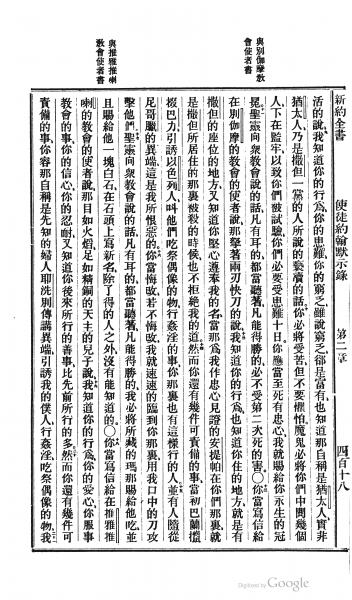 新約全書 使徒約翰默示錄 第二章 四百十八
與別伽摩教
會使者書
與推雅推喇
教會使者書
活的說、我知道你的行為、你的患難、你的窮乏、雖說窮乏、卻是富有、也知道那自稱是猶太人、實非
猶太人、乃是撒但一黨的人所說的褻瀆的話、你必將受苦、但不要懼怕、魔鬼必將你們中間幾個
人、下在監牢、以致你們被試驗、你們必要受患難十日、你應當至死有忠心、我就賜給你永生的冠
冕、聖靈向衆教會說的話、凡有耳的、都當聽著、凡能得勝的、必不受第二次死的害、○你當寫信給
在別伽摩的教會的使者說、那拏著兩刃快刀的說、我知道你的行為、也知道你住的地方、就是有
撒但的座位的地方、又知道你堅心遵奉我的名、當那為我作忠心見證的安提帕在你們那裏、就
是撒但所居住的那裏被殺的時候、也不拒絕我的道、然而你還有幾件可責備的事、當初巴蘭攛
掇巴力、引誘以色列人、叫他們吃祭偶像的物、行姦淫的事、你那裏也有這樣行的人、並有人隨從
尼哥臘的異端、這是我所恨惡的、你當悔改、若不悔改、我就速速的臨到你那裏、用我口中的刀攻
擊他們、聖靈向衆教會說的話、凡有耳的、都當聽著、凡能得勝的、我必將所藏的瑪那賜給他吃、並
且賜給他一塊白石、在石頭上寫新名、除了得的人之外、沒有能知道的、○你當寫信給在推雅推
喇的教會的使者說、那目如火熖、足如精銅的天主的兒子說、我知道你的行為、你的愛心、你服事
教會的事、你的信心、你的忍耐、又知道你後來所行的善事、比先前所行的多、然而你還有幾件可
責備的事、你容那自稱是先知的婦人耶洗別傳講異端、引誘我的僕人、行姦淫、吃祭偶像的物、我
Digitized by Google